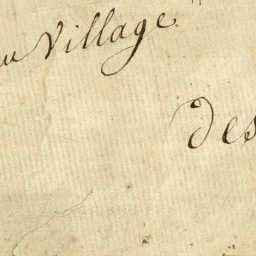 au Village
des